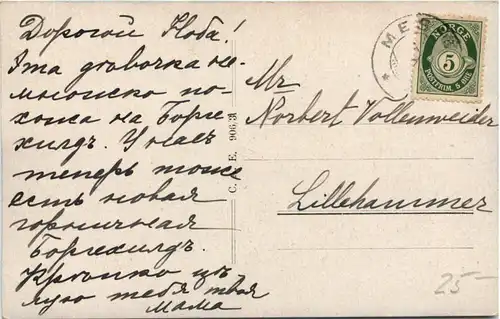 Дорогой Ноба!
Эта дѣвочка не-
множко по-
хожа на Борг-
хилдъ. У насъ
теперь тоже
есть новая
горничная
Боргхилдъ.
Крѣпко цѣ-
лую тебя твоя
мама
C. A. E. 906/31
MES
NORGE
5
POSTFRIM. 5 ØRE
Mr
Norbert Vollenweider
Lillehammer
25-